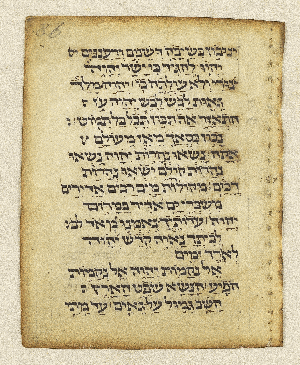 ינובון בשיבה דשנים ורעננים
יהיו להגיד כי ישר יהוה
צורי ולא עולתה בו יהוה מלך
גאות לבש לבש יהוה עז
התאזר אף תכון תבל בל תמוט
נכון כסאך מאז מעולם
אתה נשאו נהרות יהוה נשאו
נהרות קולם ישאו נהרות
דכים מקולות מים רבים אדירים
משברי ים אדיר במרום
יהוה עדתיך נאמנו מאד לבי
לביתך נאוה קדש יהוה
לארך ימים
אל נקמות יהוה אל נקמות
הופיע הנשא שפט הארץ
השב גמול על גאים עד מתי